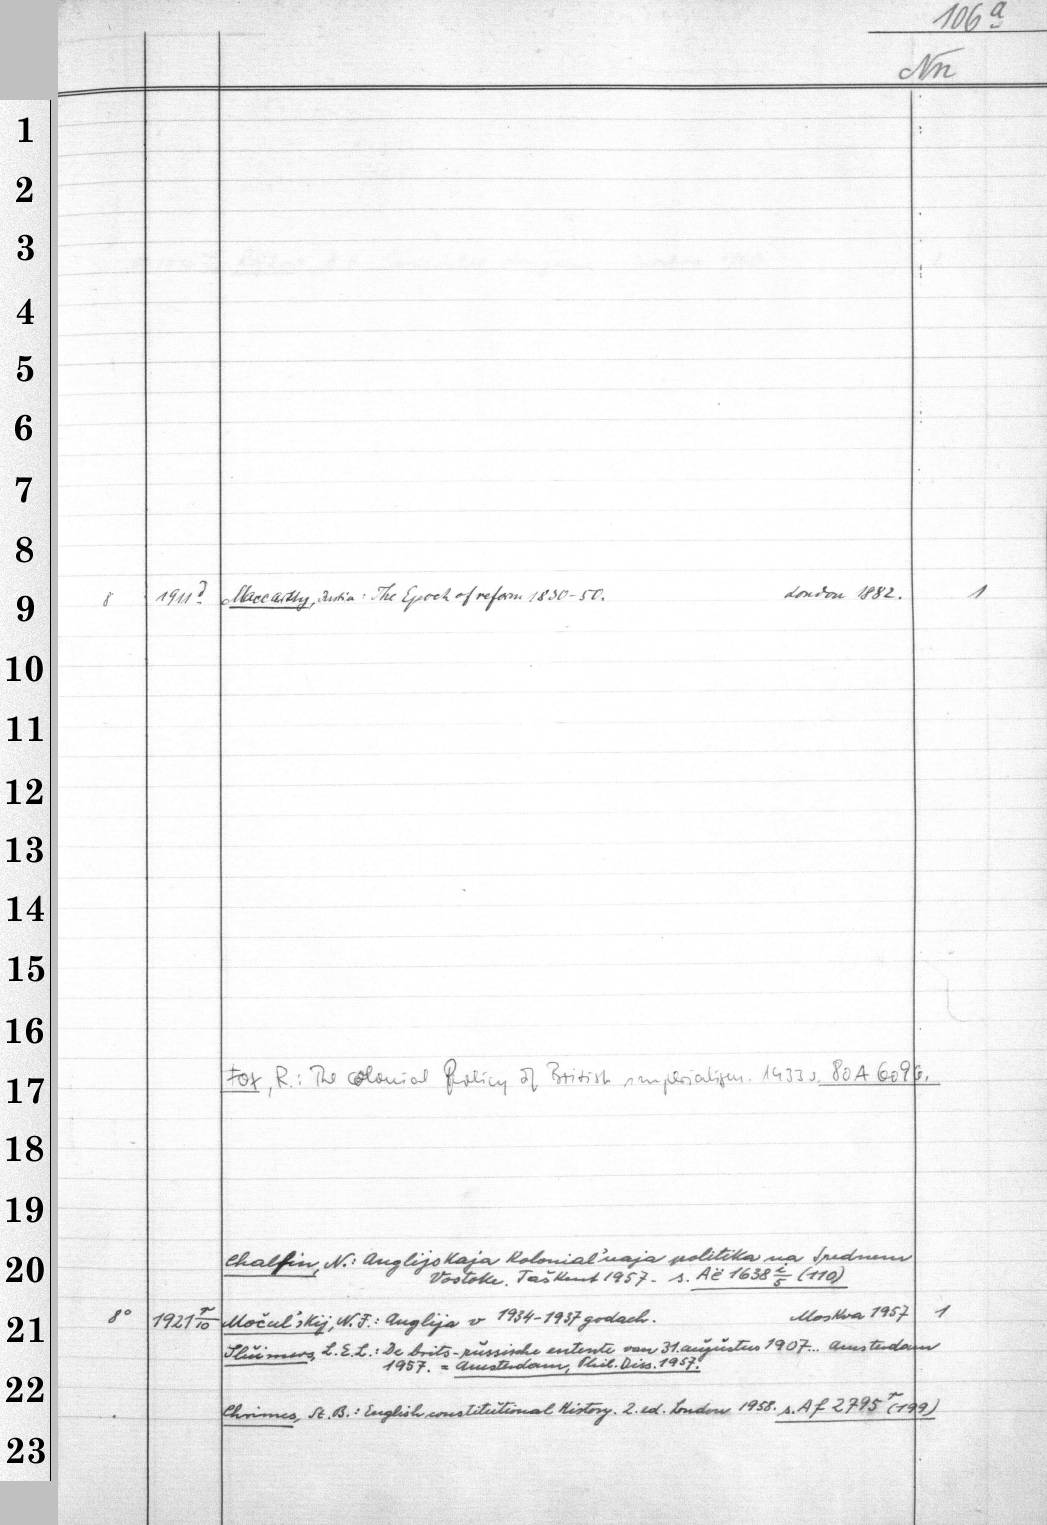 106 a
Nn
1
2
3
4
5
6
7
8
9 8 1911 d Maccarthy, Justin: The Epoch of reform 1830-50. London 1882. 1
10
11
12
13
14
15
16
17 Fox, R.: The colonial policy of British imperialism. 1933 s. 80 A 6096.
18
19
20 Chalfin, N.: Anglijskaja kolonial'naja politika na Srednem
Vostoke. Taškent 1957. s. Aë 1638 i/5 (110)
21 8° 1921 r/10 Močul'skij, N.F.: Anglija v 1934-1937 godach. Moskva 1957 1
Sluimers, L.E.L.: De brits-russische entente van 31. augustus 1907... Amsterdam
22 1957. = Amsterdam, Phil. Diss. 1957.
Chrimes, St. B.: English constitutional History. 2. ed. London 1958. s. Af 2795 r (199)
23